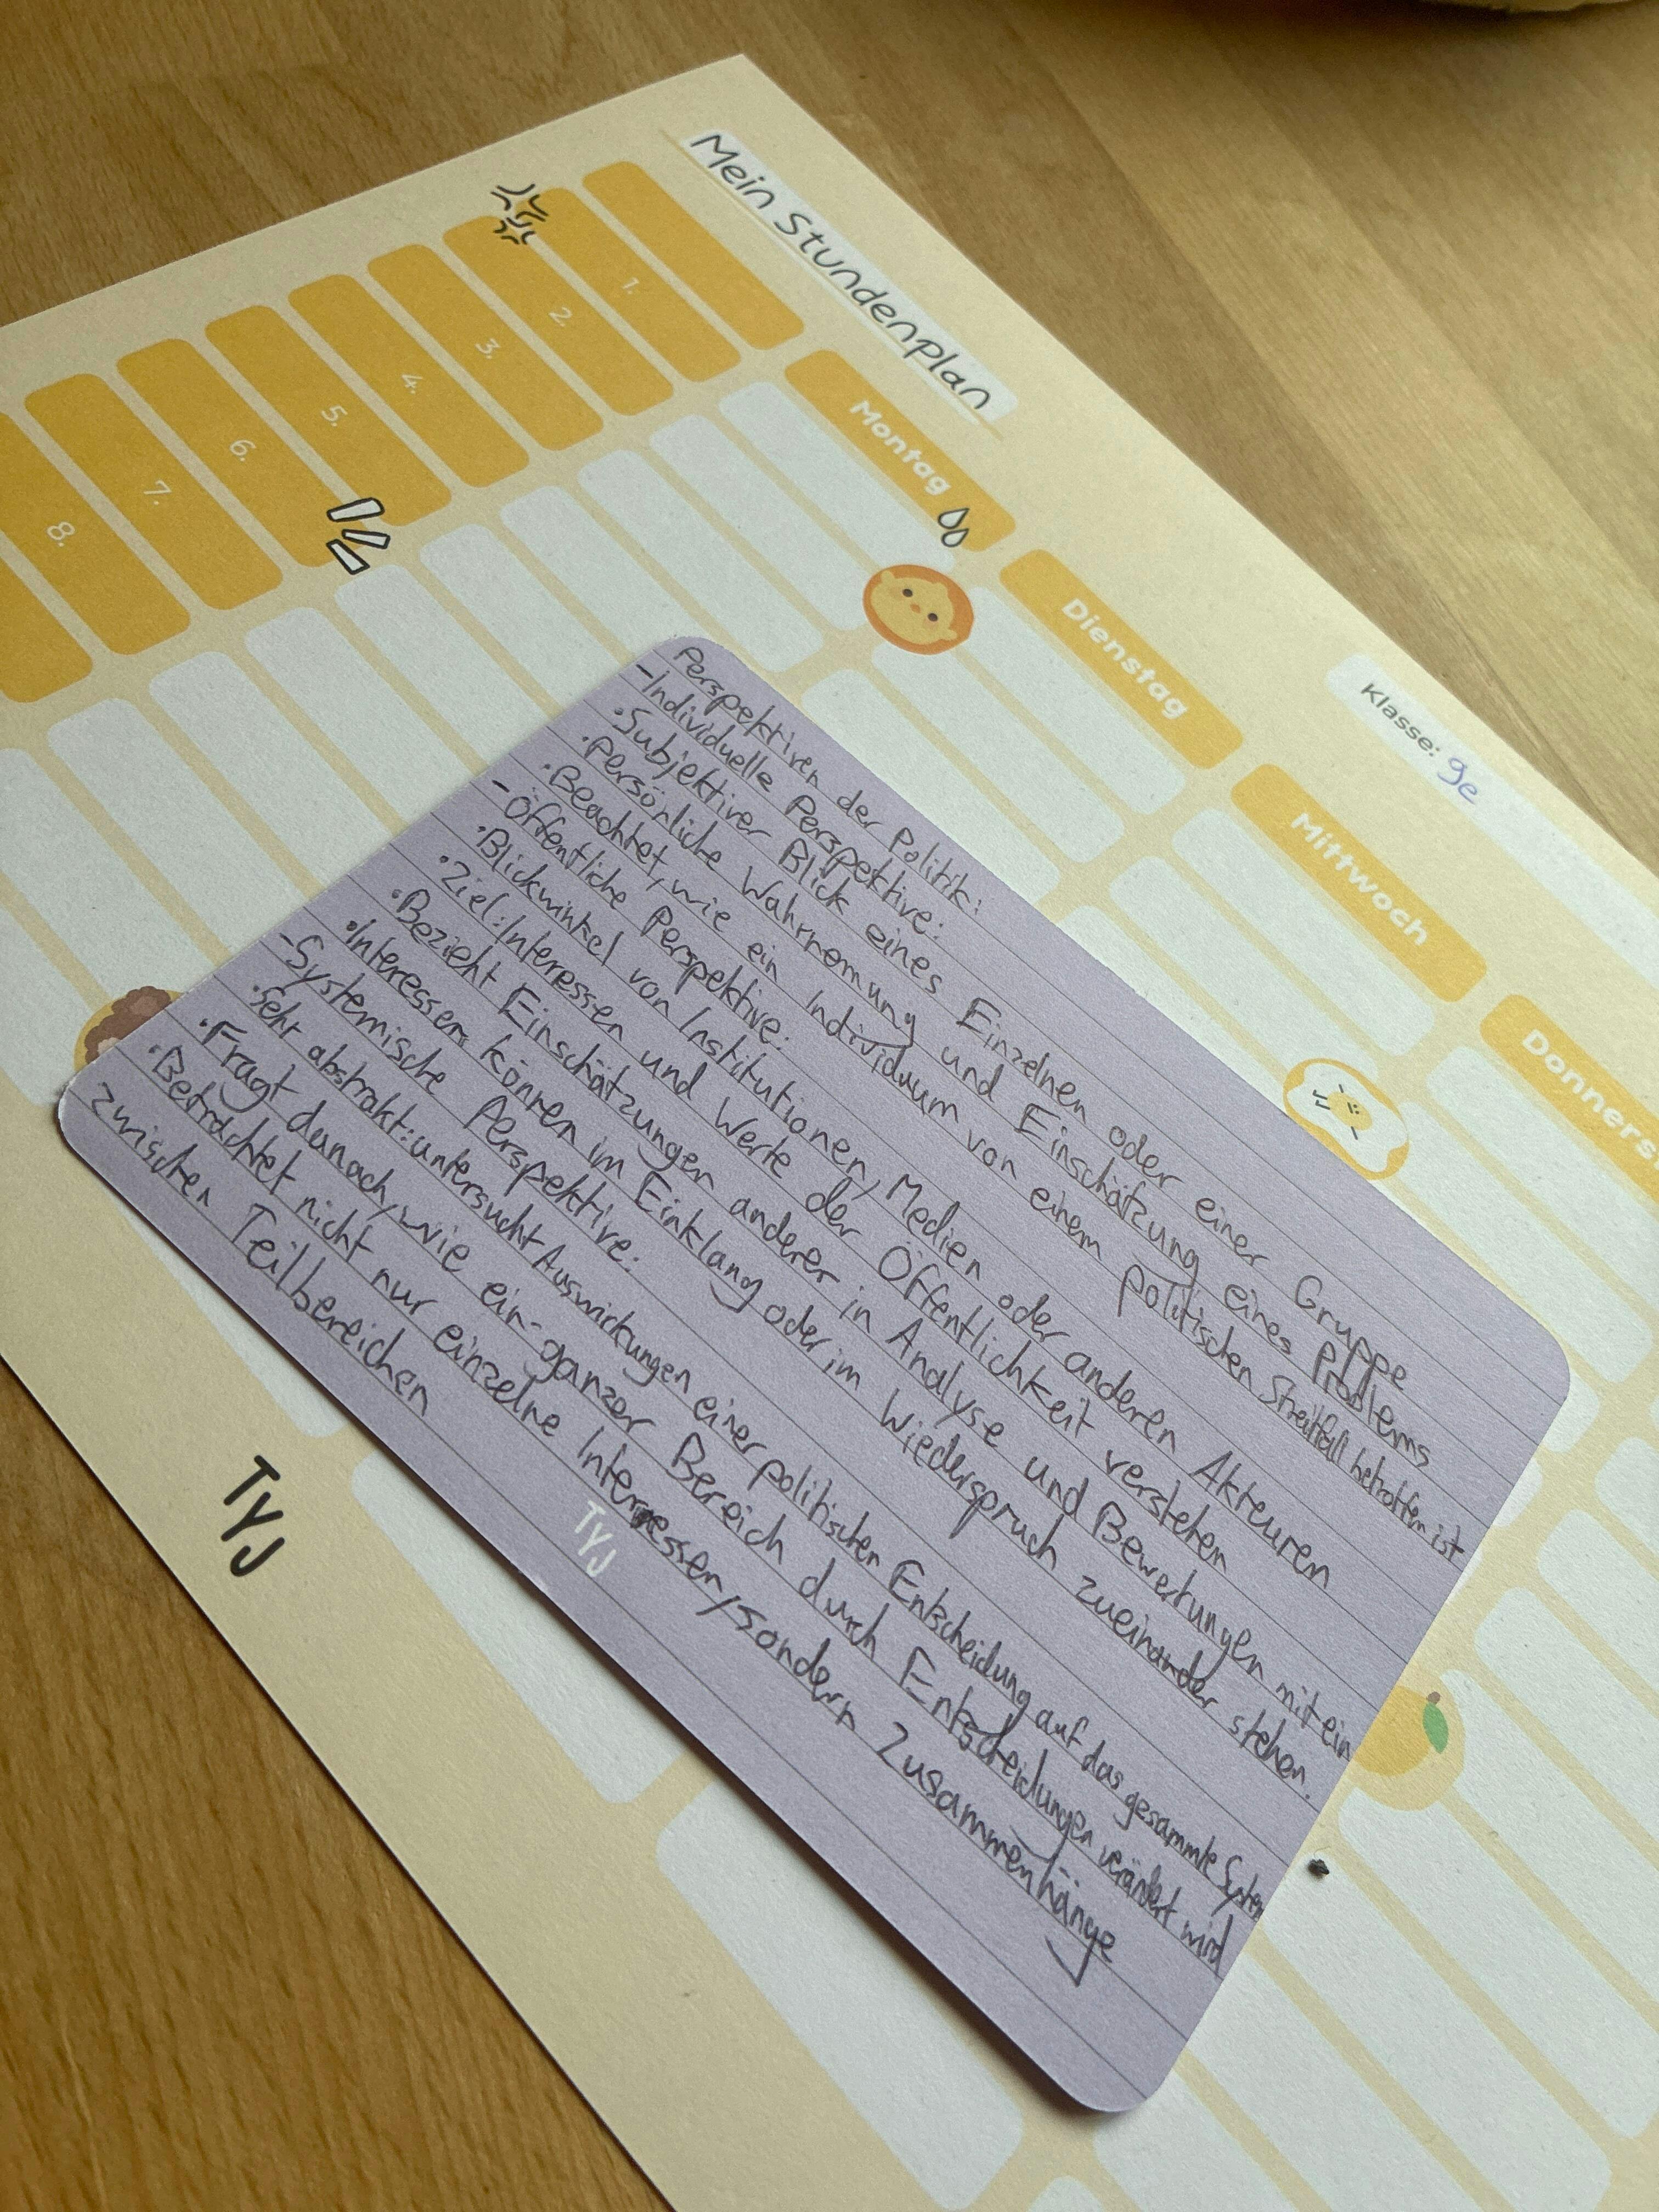 Mein Stundenplan
Klasse: 9e
Montag
Dienstag
Mittwoch
Donners
1.
2.
3.
4.
5.
6.
7.
8.
Perspektiven der Politik:
-Individuelle Perspektive:
·Subjektiver Blick eines Einzelnen oder einer Gruppe
·Persönliche Wahrnemung und Einschätzung eines Problems
·Beachtet, wie ein Individuum von einem politischen Streitfall betroffen ist
-Öffentliche Perspektive:
·Blickwinkel von Institutionen, Medien oder anderen Akteuren
·Ziel: Interessen und Werte der Öffentlichkeit verstehen
·Bezieht Einschätzungen anderer in Analyse und Bewertungen mit ein
·Interessen können im Einklang oder im Wiederspruch zueinander stehen.
-Systemische Perspektive:
·Sehr abstrakt: untersucht Auswirkungen einer politischen Entscheidung auf das gesammte System
·Fragt danach, wie ein ganzer Bereich durch Entscheidungen verändert wird
·Betrachtet nicht nur einzelne Interessen, sondern Zusammenhänge
zwischen Teilbereichen
TYJ
TYJ